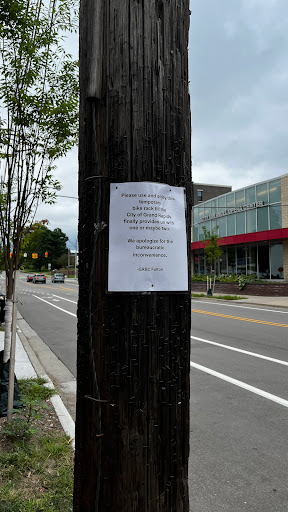 Please use and enjoy this
temporary
bike rack til the
City of Grand Rapids
finally provides us with
one or maybe two.
We apologize for the
bureaucratic
inconvenience.
CENTER